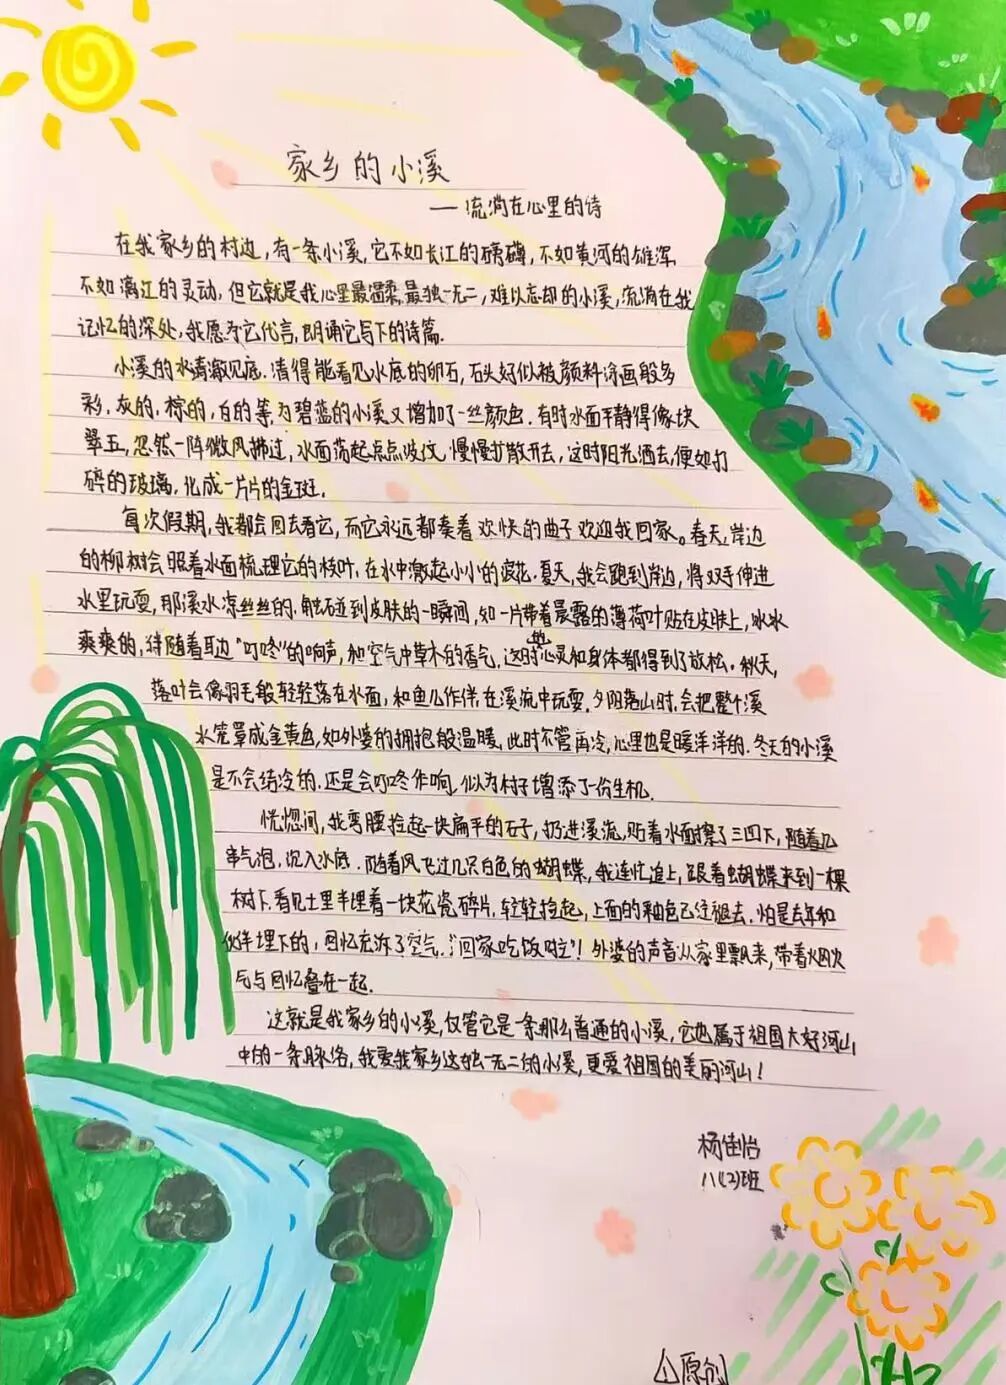 家乡的小溪
——流淌在心里的诗
在我家乡的村边，有一条小溪，它不如长江的磅礴，不如黄河的雄浑
不如漓江的灵动，但它就是我心里最温柔，最独一无二，难以忘却的小溪，流淌在我
记忆的深处，我愿为它代言，朗诵它写下的诗篇。
小溪的水清澈见底，清得能看见水底的卵石，石头好似被颜料涂画般多
彩，灰的，棕的，白的等，为碧蓝的小溪又增加了一丝颜色。有时水面平静得像块
翠玉，忽然一阵微风拂过，水面荡起点点波纹，慢慢扩散开去，这时阳光洒去，便如打
碎的玻璃，化成一片片的金斑。
每次假期，我都会回去看它，而它永远都奏着欢快的曲子欢迎我回家。春天，岸边
的柳树会照着水面梳理它的枝叶，在水中激起小小的浪花。夏天，我会跑到岸边，将双手伸进
水里玩耍，那溪水凉丝丝的，触碰到皮肤的一瞬间，如一片带着晨露的薄荷叶贴在皮肤上，冰冰
爽爽的，伴随着耳边“叮咚”的响声，和空气中草木的香气，这时的心灵和身体都得到了放松。秋天，
落叶会像羽毛般轻轻落在水面，和鱼儿作伴，在溪流中玩耍。夕阳落山时，会把整个溪
水笼罩成金黄色，如外婆的拥抱般温暖，此时不管再冷，心里也是暖洋洋的。冬天的小溪
是不会结冷的，还是会叮咚作响，似为村子增添了一份生机。
恍惚间，我弯腰捡起一块扁平的石子，扔进溪流，贴着水面擦了三四下，随着几
串气泡，沉入水底。随着风飞过几只白色的蝴蝶，我连忙追上，跟着蝴蝶来到一棵
树下，看见土里半埋着一块花瓷碎片，轻轻捡起，上面的釉色已经褪去，怕是去年和
伙伴埋下的，回忆充沛了空气。“回家吃饭啦”！外婆的声音从家里飘来，带着烟火
气与回忆叠在一起。
这就是我家乡的小溪，仅管它是一条那么普通的小溪，它也属于祖国大好河山
中的一条脉络，我爱我家乡这独一无二的小溪，更爱祖国的美丽河山！
杨佳怡
八(2)班
原创